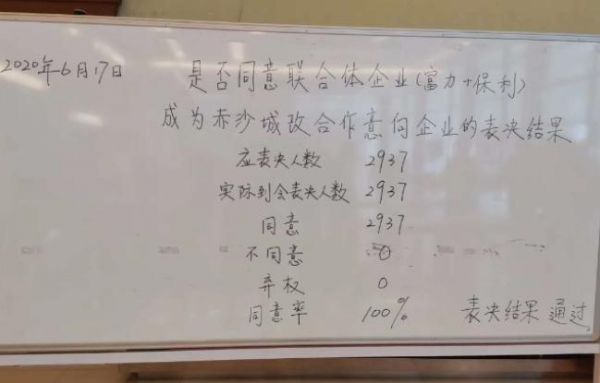 2020年6月17日 是否同意联合体企业(富力+保利)
成为赤沙城改合作意向企业的表决结果
应表决人数 2937
实际到会表决人数 2937
同意 2937
不同意 0
弃权 0
同意率 100% 表决结果 通过